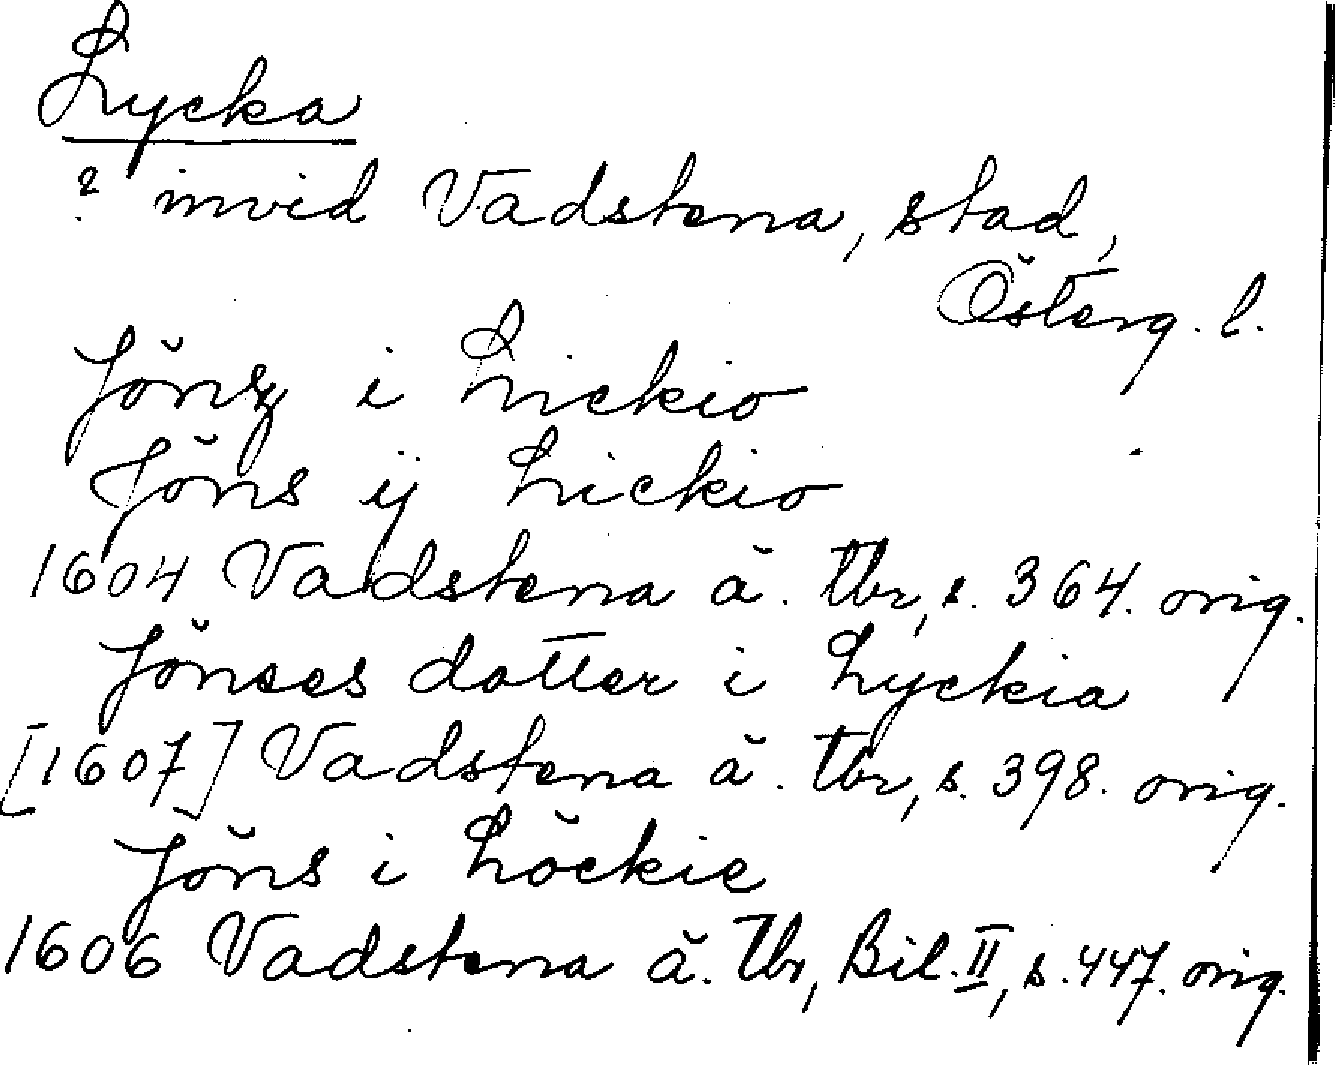 Lycka
? invid Vadstena, stad,
Österg. l.
Jönsz i Lickio
Jöns ij Lickio
1604 Vadstena ä. tbr, s. 364. orig.
Jönses dotter i Lyckia
[1607] Vadstena ä. tbr, s. 398. orig.
Jöns i Löckie
1606 Vadstena ä. Tbr, Bil. II, s. 447. orig.